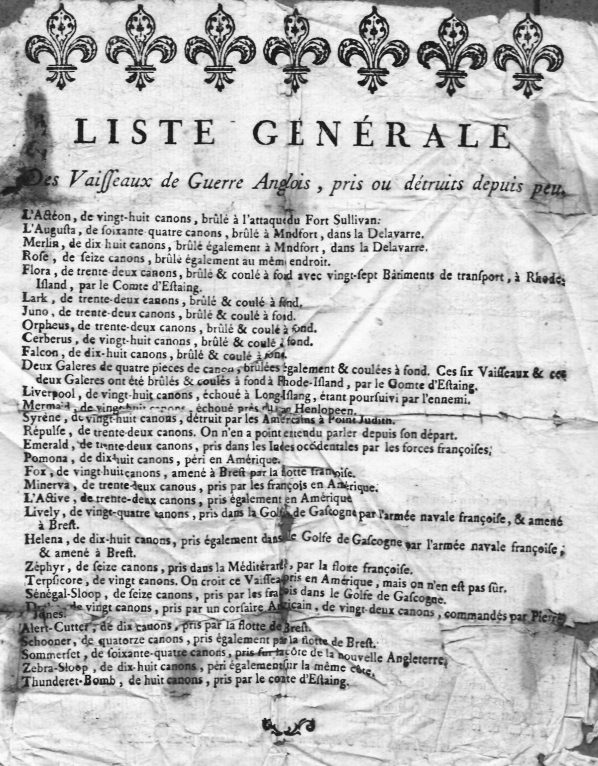 LISTE GENÉRALE
Des Vaisseaux de Guerre Anglois, pris ou détruits depuis peu.
L'Actéon, de vingt-huit canons, brûlé à l'attaque du Fort Sullivan.
L'Augusta, de soixante-quatre canons, brûlé à Mndfort, dans la Delavarre.
Merlin, de dix huit canons, brûlé également à Mndfort, dans la Delavarre.
Rose, de seize canons, brûlé également au même endroit.
Flora, de trente-deux canons, brûlé & coulé à fond avec vingt-sept Bâtiments de transport, à Rhode-
Island, par le Comte d'Estaing.
Lark, de trente-deux canons, brûlé & coulé à fond.
Juno, de trente-deux canons, brûlé & coulé à fond.
Orpheus, de trente-deux canons, brûlé & coulé à fond.
Cerberus, de vingt-huit canons, brûlé & coulé à fond.
Falcon, de dix-huit canons, brûlé & coulé à fond.
Deux Galeres de quatre pieces de canon, brûlées également & coulées à fond. Ces six Vaisseaux & ces
deux Galeres ont été brûlés & coulés à fond à Rhode-Island, par le Comte d'Estaing.
Liverpool, de vingt-huit canons, échoué à Long-Islang, étant poursuivi par l'ennemi.
Mermaid, de vingt-huit canons, échoué près du cap Henlopeen.
Syréne, de vingt-huit canons, détruit par les Américains à Point Judith.
Répulse, de trente-deux canons. On n'en a point entendu parler depuis son départ.
Emerald, de trente-deux canons, pris dans les Indes occidentales par les forces françoises,
Pomona, de dix huit canons, péri en Amérique.
Fox, de vingt-huit canons, amené à Brest par la flotte françoise.
Minerva, de trente-deux canous, pris par les françois en Amérique.
L'Active, de trente-deux canons, pris également en Amérique
Lively, de vingt-quatre canons, pris dans la Golfe de Gascogne par l'armée navale françoise, & amené
à Brest.
Helena, de dix-huit canons, pris également dans le Golfe de Gascogne par l'armée navale françoise,
& amené à Brest.
Zéphyr, de seize canons, pris dans la Méditérané, par la flotte françoise.
Terpsicore, de vingt canons. On croit ce Vaisseau pris en Amérique, mais on n'en est pas sûr.
Sénégal-Sloop, de seize canons, pris par les françois dans le Golfe de Gascogne.
de vingt canons, pris par un corsaire Américain, de vingt-deux canons, commandés par Pierre
Jones.
Alert-Cutter, de dix canons, pris par la flotte de Brest.
Schooner, de quatorze canons, pris également par la flotte de Brest.
Sommerset, de soixante-quatre canons, pris sur la côte de la nouvelle Angleterre,
Zebra-Sloop, de dix-huit canons, péri également sur la même côte.
Thunderet-Bomb, de huit canons, pris par le comte d'Estaing.